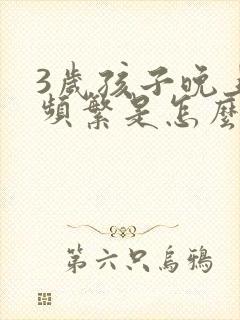 3歲孩子晚
頻繁是怎麼
第六只烏鴉